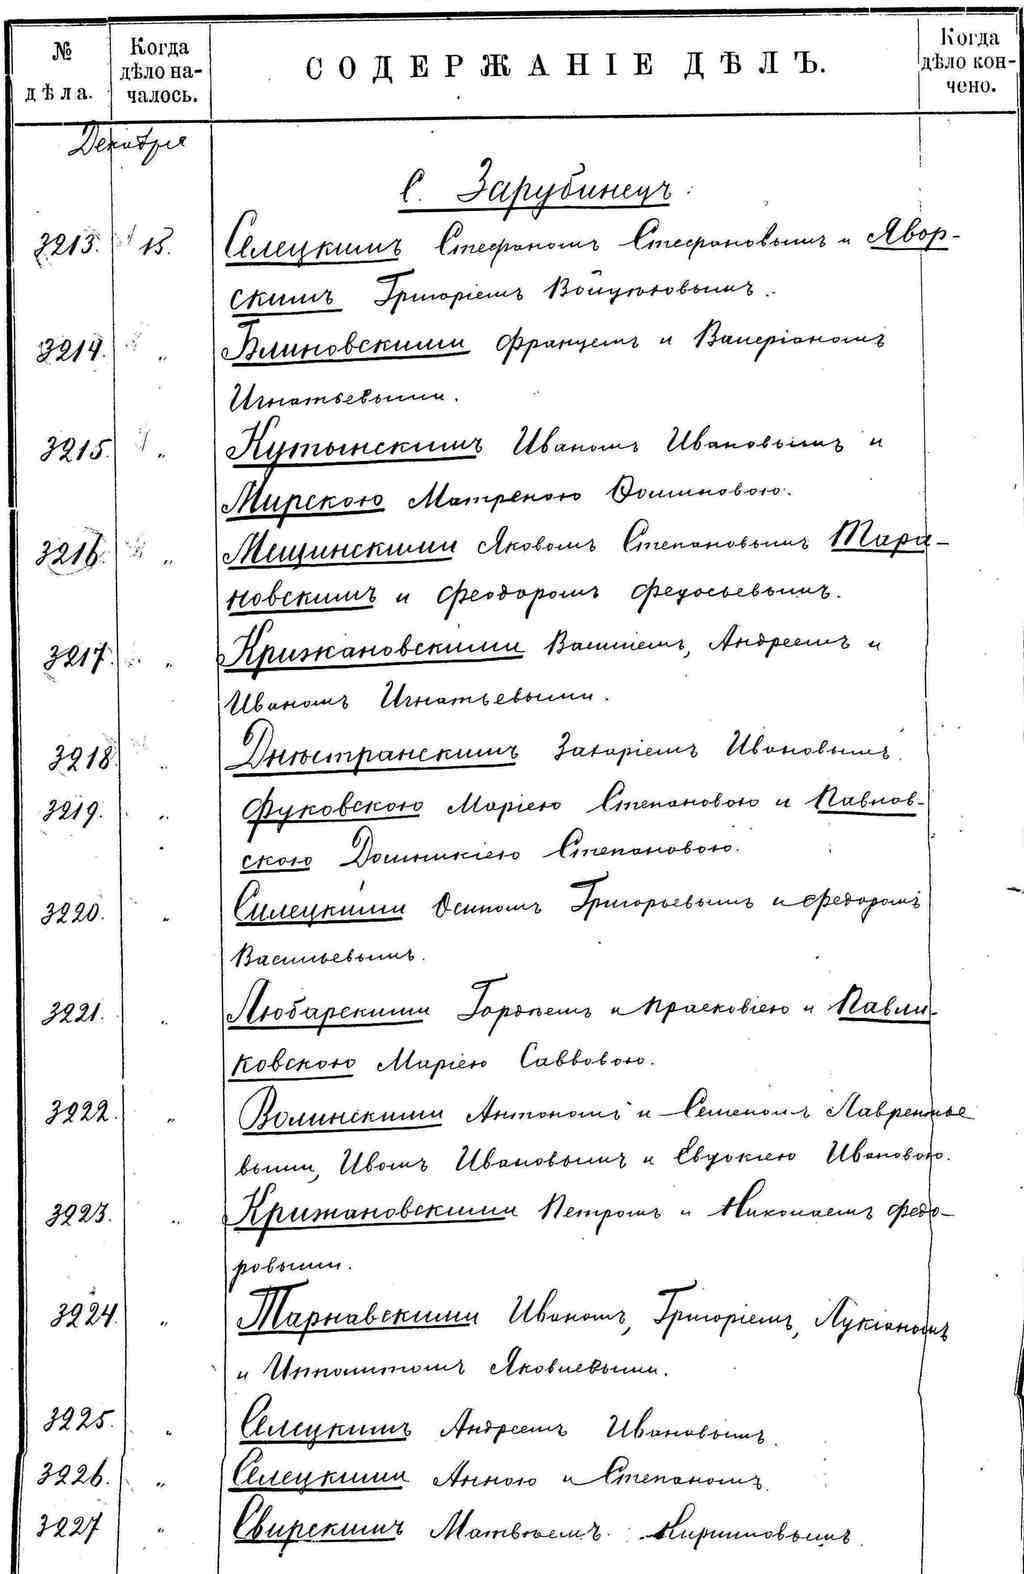 № дѣла.
Когда дѣло началось.
СОДЕРЖАНІЕ ДѢЛЪ.
Когда дѣло кончено.
Декабря
С. Зарубинецъ:
3213. 15. Селецкимъ Стефаномъ Стефановымъ и Явор-
скимъ Григоріемъ
3214. „ Блиновскими Францемъ и Валеріаномъ
Игнатьевыми.
3215. „ Кутынскимъ Иваномъ Ивановымъ и
Мирскою Матреною Фоминовою.
3216. „ Мещинскими Яковомъ Степановымъ Тара-
новскимъ и Феодоромъ Федосьевымъ.
3217. „ Крижановскими Василіемъ, Андреемъ и
Иваномъ Игнатьевыми.
3218. „ Днѣстранскимъ Захаріемъ Ивановымъ.
3219. „ Фуковскою Маріею Степановою и Павлов-
скою Доминикіею Степановою.
3220. „ Силецкими Осипомъ Григорьевымъ и Федоромъ
Васильевымъ.
3221. „ Любарскими Гордѣемъ и Прасковіею и Павли-
ковскою Маріею Саввовою.
3222. „ Волинскими Антономъ и Семеномъ Лавренть
евыми, Ивомъ Ивановымъ и Евдокіею Ивановою.
3223. „ Крижановскими Петромъ и Николаемъ Федо-
ровыми.
3224. „ Тарнавскими Иваномъ, Григоріемъ, Лукіаномъ
и Ипполитомъ Яковлевыми.
3225. „ Селецкимъ Андреемъ Ивановымъ.
3226. „ Селецкими Анною и Степаномъ.
3227 „ Свирскимъ Матвѣемъ Кириловымъ.